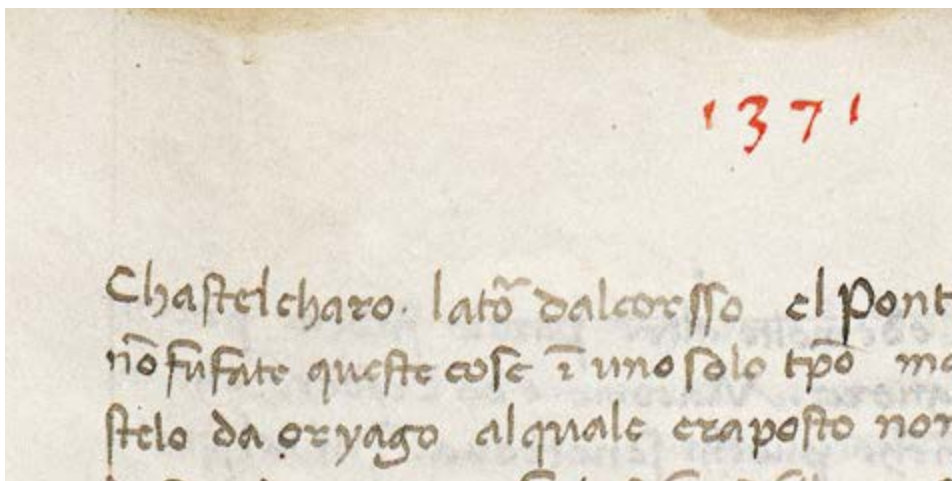 1371
Chastelcharo. latõ dalcorsso el Pont
nō fu fate queste cose ī uno solo tp̄o
stelo da oryago al quale era posto non